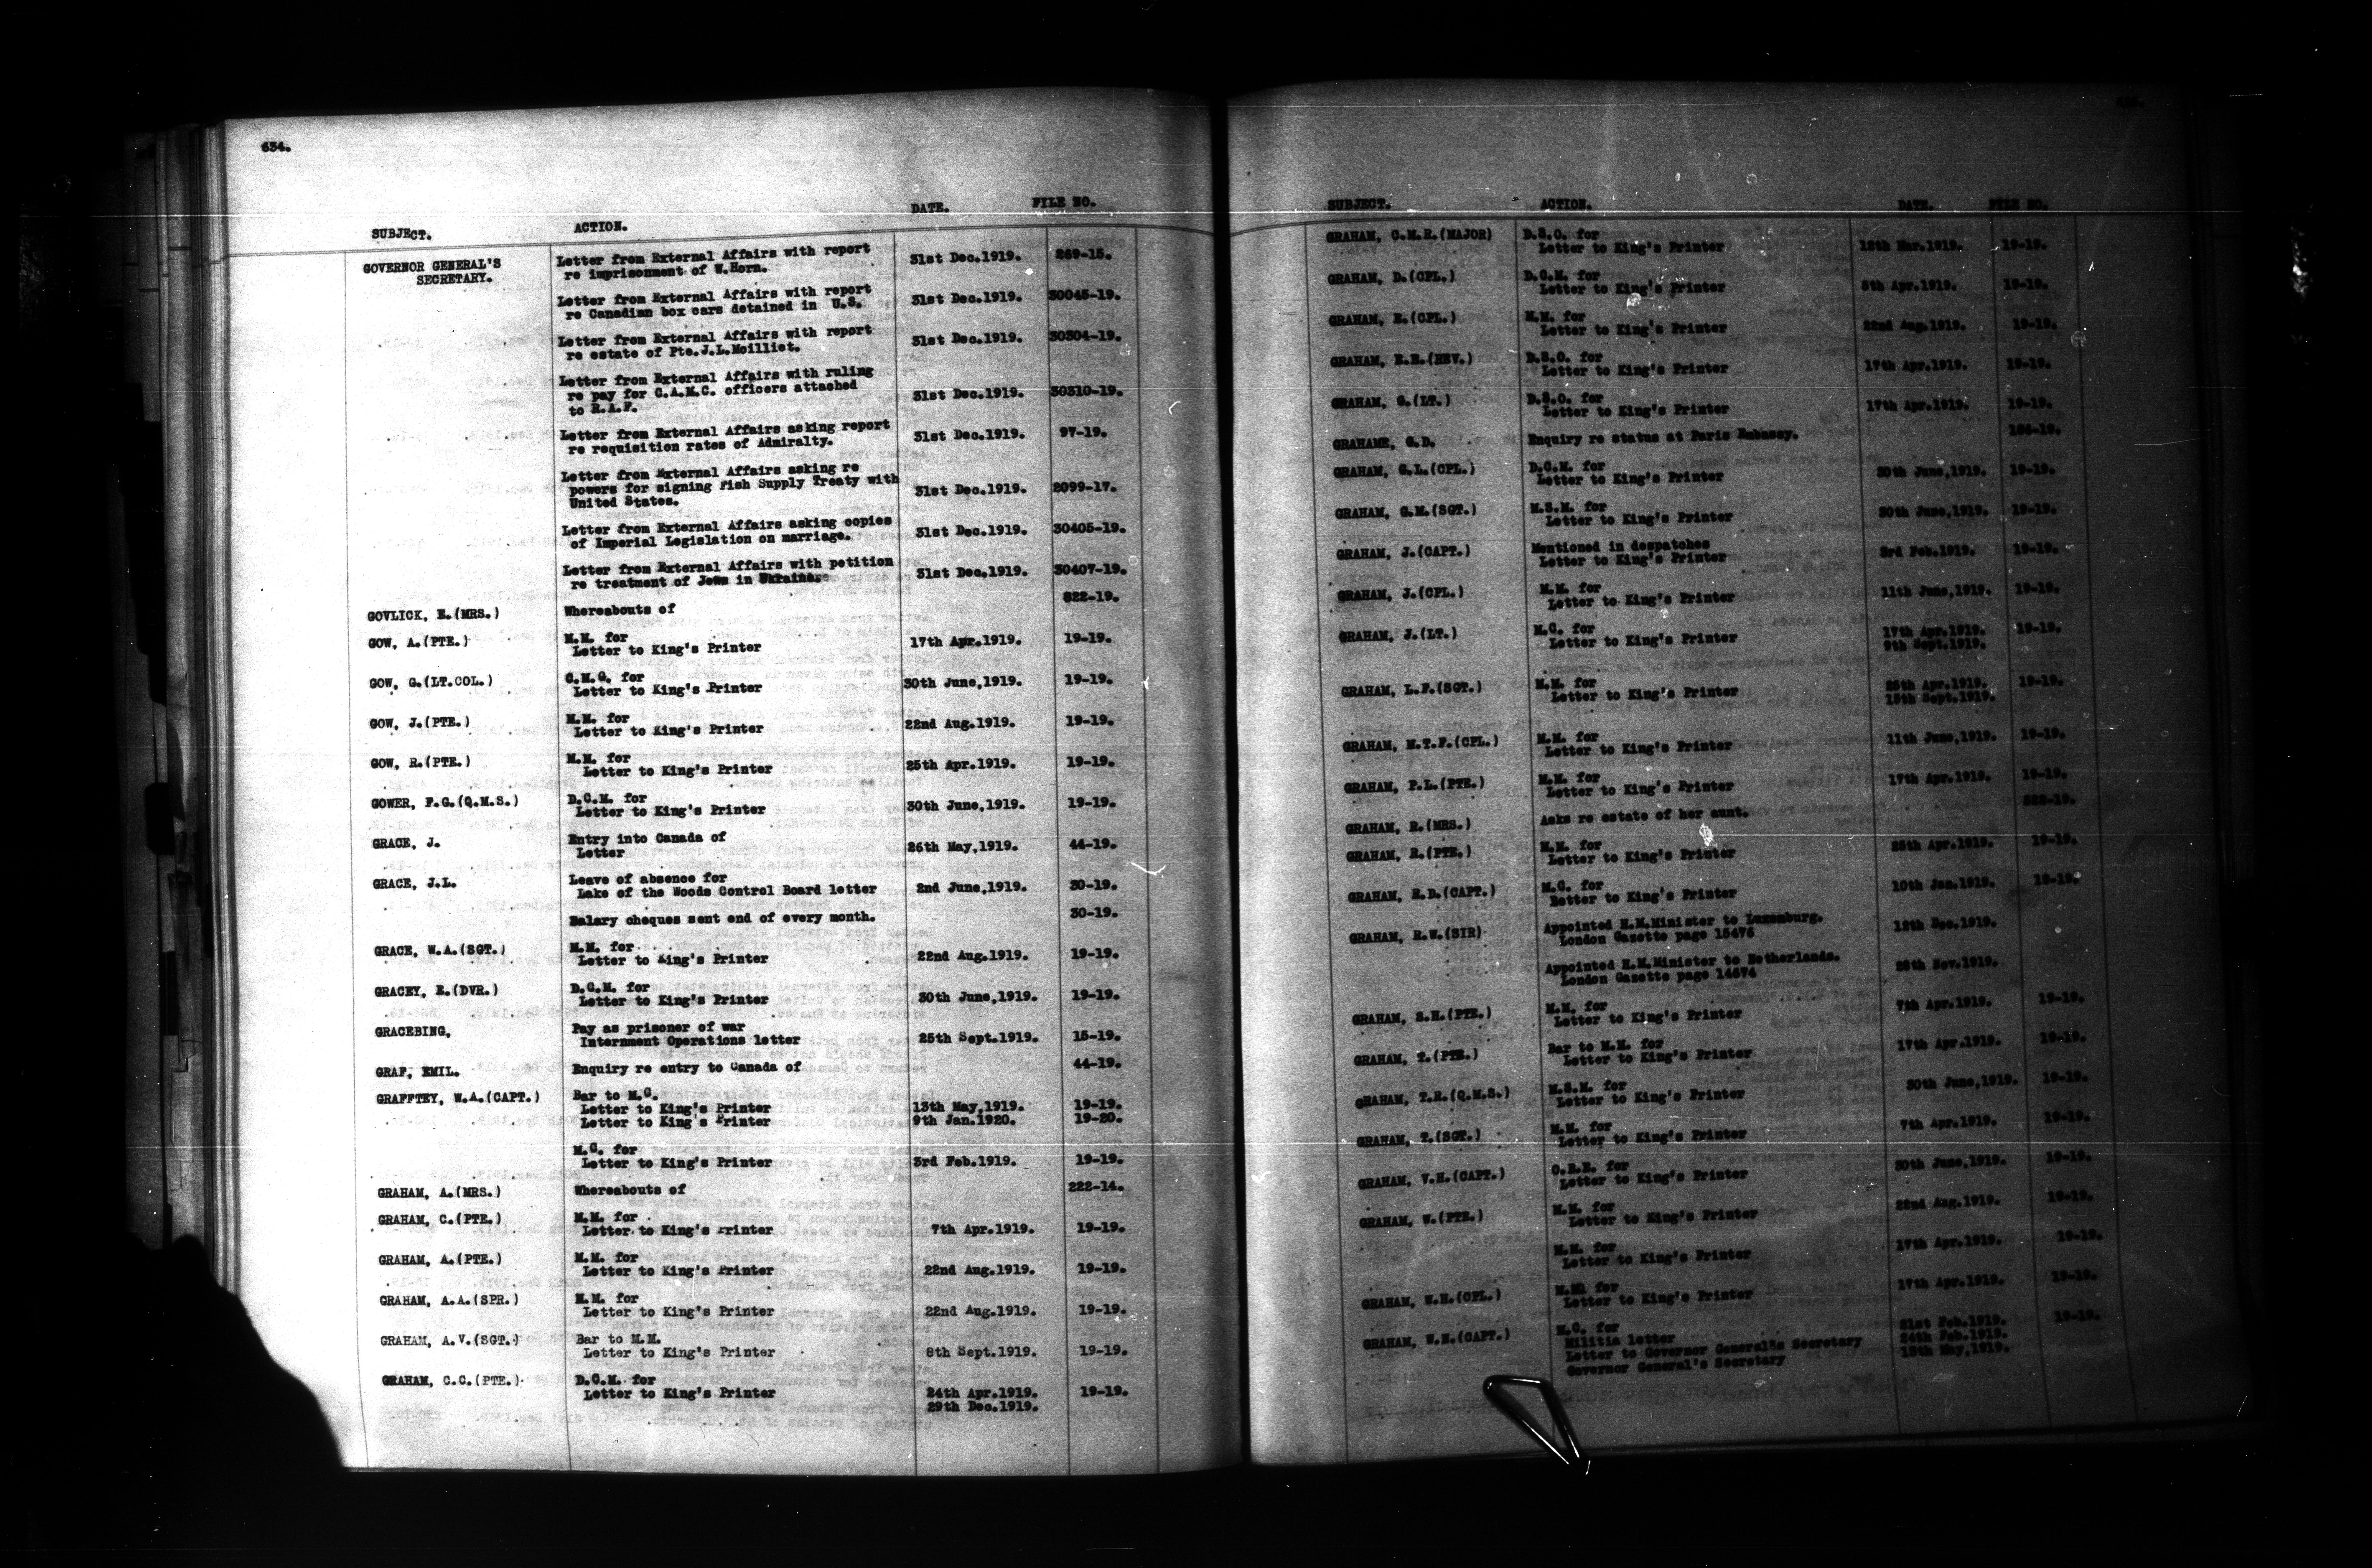 634.
SUBJECT. ACTION. DATE. FILE NO.
GOVERNOR GENERAL'S Letter from External Affairs with report 31st Dec.1919. 269-15.
SECRETARY. re imprisonment of W.Horn.
Letter from External Affairs with report 31st Dec.1919. 30045-19.
re Canadian box cars detained in U.S.
Letter from External Affairs with report 31st Dec.1919. 30304-19.
re estate of Pte.J.L.Moilliet.
Letter from External Affairs with ruling
re pay for C.A.M.C. officers attached 31st Dec.1919. 30310-19.
to R.A.F.
Letter from External Affairs asking report 31st Dec.1919. 97-19.
re requisition rates of Admiralty.
Letter from External Affairs asking re
powers for signing Fish Supply Treaty with 31st Dec.1919. 2099-17.
United States.
Letter from External Affairs asking copies 31st Dec.1919. 30405-19.
of Imperial Legislation on marriage.
Letter from External Affairs with petition 31st Dec.1919. 30407-19.
re treatment of Jews in Ukraine
GOVLICK, E.(MRS.) Whereabouts of 822-19.
GOW, A.(PTE.) M.M. for 17th Apr.1919. 19-19.
Letter to King's Printer
GOW, G.(LT.COL.) C.M.G. for 30th June,1919. 19-19.
Letter to King's Printer
GOW, J.(PTE.) M.M. for 22nd Aug.1919. 19-19.
Letter to King's Printer
GOW, R.(PTE.) M.M. for 25th Apr.1919. 19-19.
Letter to King's Printer
GOWER, F.G.(Q.M.S.) D.C.M. for 30th June,1919. 19-19.
Letter to King's Printer
GRACE, J. Entry into Canada of 26th May,1919. 44-19.
Letter
GRACE, J.L. Leave of absence for
Lake of the Woods Control Board letter 2nd June,1919. 30-19.
Salary cheques sent end of every month. 30-19.
GRACE, W.A.(SGT.) M.M. for
Letter to King's Printer 22nd Aug.1919. 19-19.
GRACEY, E.(DVR.) D.C.M. for
Letter to King's Printer 30th June,1919. 19-19.
GRACEBING, Pay as prisoner of war
Internment Operations letter 25th Sept.1919. 15-19.
GRAF, EMIL. Enquiry re entry to Canada of 44-19.
GRAFFTEY, W.A.(CAPT.) Bar to M.C.
Letter to King's Printer 13th May,1919. 19-19.
Letter to King's Printer 9th Jan.1920. 19-20.
M.C. for
Letter to King's Printer 3rd Feb.1919. 19-19.
GRAHAM, A.(MRS.) Whereabouts of 222-14.
GRAHAM, C.(PTE.) M.M. for
Letter to King's Printer 7th Apr.1919. 19-19.
GRAHAM, A.(PTE.) M.M. for
Letter to King's Printer 22nd Aug.1919. 19-19.
GRAHAM, A.A.(SPR.) M.M. for
Letter to King's Printer 22nd Aug.1919. 19-19.
GRAHAM, A.V.(SGT.) Bar to M.M.
Letter to King's Printer 8th Sept.1919. 19-19.
GRAHAM, C.C.(PTE.) D.C.M. for
Letter to King's Printer 24th Apr.1919. 19-19.
29th Dec.1919.
SUBJECT. ACTION. DATE. FILE NO.
GRAHAM, C.M.R.(MAJOR) D.S.O. for
Letter to King's Printer 19-19.
GRAHAM, D.(CPL.) D.C.M. for
Letter to King's Printer 19-19.
GRAHAM, E.(CPL.) M.M. for
Letter to King's Printer 22nd Aug.1919. 19-19.
GRAHAM, E.E.(REV.) D.S.O. for
Letter to King's Printer 17th Apr.1919. 19-19.
GRAHAM, G.(LT.) D.S.O. for
Letter to King's Printer 17th Apr.1919. 19-19.
GRAHAME, G.D. Enquiry re status at Paris Embassy.
GRAHAM, G.L.(CPL.) D.C.M. for 30th June,1919. 19-19.
Letter to King's Printer
GRAHAM, G.M.(SGT.) M.S.M. for 30th June,1919. 19-19.
Letter to King's Printer
GRAHAM, J.(CAPT.) Mentioned in despatches 3rd Feb.1919. 19-19.
Letter to King's Printer
GRAHAM, J.(CPL.) M.M. for 11th June,1919. 19-19.
Letter to King's Printer
GRAHAM, J.(LT.) M.C. for 17th Apr.1919. 19-19.
Letter to King's Printer 9th Sept.1919.
GRAHAM, L.F.(SGT.) M.M. for 25th Apr.1919. 19-19.
Letter to King's Printer Sept.1919.
GRAHAM, M.T.F.(CPL.) M.M. for 11th June,1919. 19-19.
Letter to King's Printer
GRAHAM, P.L.(PTE.) M.M. for 17th Apr.1919. 19-19.
Letter to King's Printer
GRAHAM, R.(MRS.) Asks re estate of her aunt.
GRAHAM, R.(PTE.) M.M. for 25th Apr.1919. 19-19.
Letter to King's Printer
GRAHAM, R.D.(CAPT.) M.C. for 10th Jan.1919. 19-19.
Letter to King's Printer
GRAHAM, R.W.(SIR) Appointed H.M.Minister to Luxemburg. 12th Dec.1919.
London Gazette page 15476
Appointed H.M.Minister to Netherlands. 28th Nov.1919.
London Gazette page 14674
GRAHAM, S.H.(PTE.) M.M. for 7th Apr.1919. 19-19.
Letter to King's Printer
GRAHAM, T.(PTE.) Bar to M.M. for 17th Apr.1919. 19-19.
Letter to King's Printer
GRAHAM, T.R.(Q.M.S.) M.S.M. for 30th June,1919. 19-19.
Letter to King's Printer
GRAHAM, T.(SGT.) M.M. for 7th Apr.1919. 19-19.
Letter to King's Printer
GRAHAM, V.H.(CAPT.) O.B.E. for 30th June,1919. 19-19.
Letter to King's Printer
GRAHAM, W.(PTE.) M.M. for 22nd Aug.1919. 19-19.
Letter to King's Printer
M.M. for 17th Apr.1919. 19-19.
Letter to King's Printer
GRAHAM, W.H.(CPL.) M.M. for 17th Apr.1919. 19-19.
Letter to King's Printer
GRAHAM, W.N.(CAPT.) M.C. for 19-19.
Militia letter 21st Feb.1919.
Letter to Governor General's Secretary 24th Feb.1919.
Governor General's Secretary 13th May,1919.